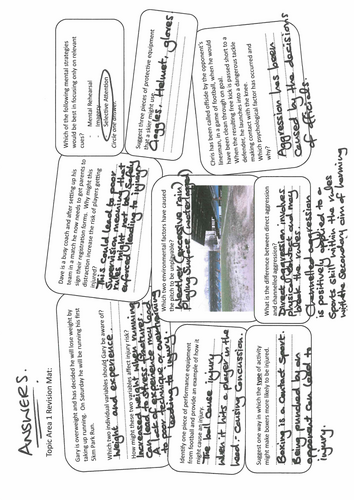 ANSWERS.
Topic Area 1 Revision Mat:
Gary is overweight and has decided he will lose weight by
taking up running. On Saturday he will be running his first
5km Park Run.
Which two individual variables should Gary be aware of?
Weight and experience
How might these two variables affect injury risk?
Increased weight when running
can lead to stress fractures.
A lack of experience may lead
to poor technique or overtraining
leading to injury
Dave is a busy coach and after setting up his
team in a match he now needs to get parents to
sign their registration forms. Why might this
distraction increase the risk of players getting
injured?
This could lead to poor
supervision meaning that
rules might not be safely
enforced leading to injury
Which of the following mental strategies
would be best in focusing only on relevant
cues?
Mental Rehearsal
Imagery
Selective Attention
Circle one answer.
Identify one piece of performance equipment
from football and provide an example of how it
might cause an injury.
The ball cause injury
when it hits a player in the
head - causing concussion.
Which two environmental factors have caused
the pitch to be unplayable?
Weather (excessive rain)
Playing Surface (waterlogged)
Suggest three pieces of protective equipment
that a skier might use.
Goggles, Helmet, gloves
Suggest one way in which the type of activity
might make boxers more likely to be injured.
Boxing is a contact sport.
Being punched by an
opponent can lead to
injury.
What is the difference between direct aggression
and channelled aggression?
Direct aggression makes
physical contact and may
break the rules.
Channelled aggression
is positively applied to a
sports skill within the rules
with the secondary aim of harming
Chris has been called offside by the opponent's
linesman, in a game of football, when he would
have been clean through on goal.
When the resulting free kick is passed short to a
defender, he launches into a dangerous tackle
making contact with the knee.
Which psychological factor has occurred and
why?
Aggression has been
caused by the decisions
of officials.